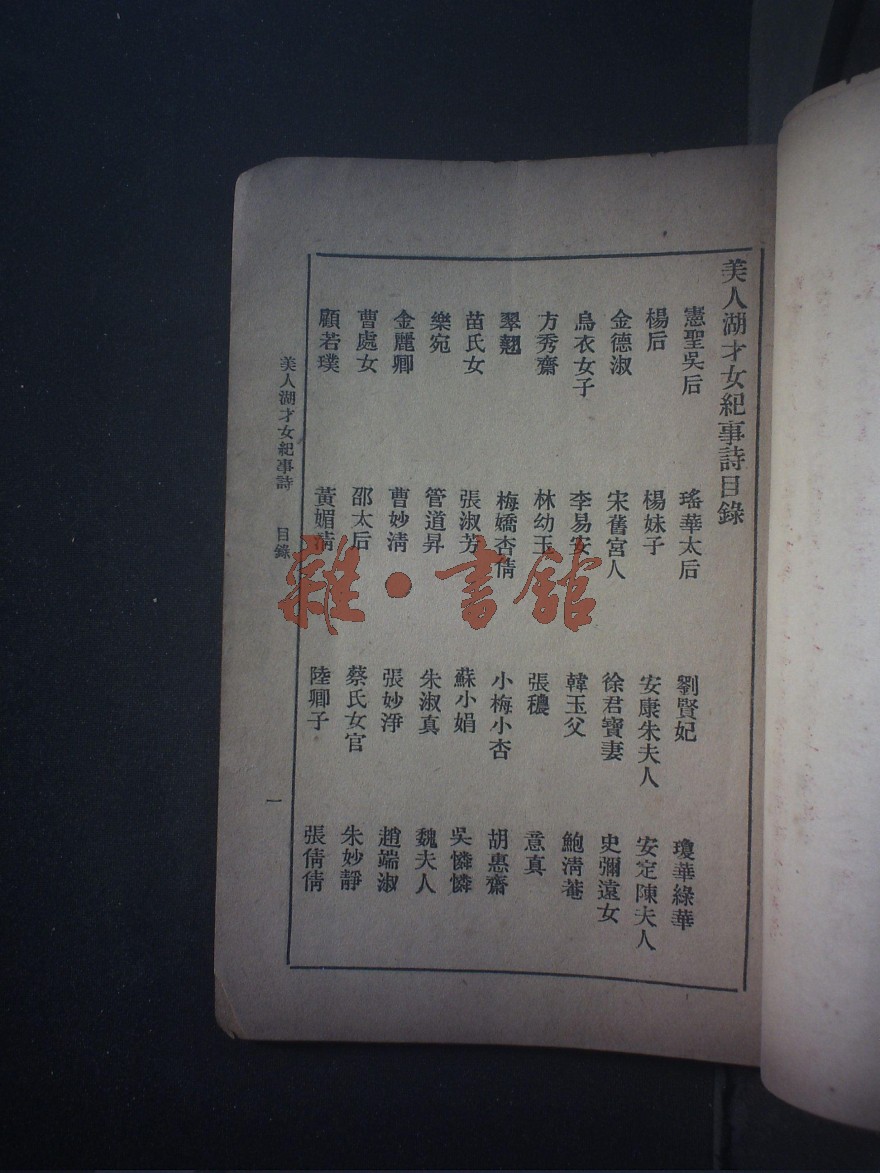 美人湖才女紀事詩目錄
憲聖吳后 瑤華太后 劉賢妃 瓊華綠華
楊后 楊妹子 安康朱夫人 安定陳夫人
金德淑 宋舊宮人 徐君寶妻 史彌遠女
烏衣女子 李易安 韓玉父 鮑淸菴
方秀齋 林幼玉 張穠 意真
翠翹 梅嬌杏倩 小梅小杏 胡惠齋
苗氏女 張淑芳 蘇小娟 吳憐憐
樂宛 管道昇 朱淑真 魏夫人
金麗卿 曹妙淸 張妙淨 趙端淑
曹處女 邵太后 蔡氏女官 朱妙靜
顧若璞 黃媚淸 陸卿子 張倩倩
美人湖才女紀事詩 目錄
一
雜·書館